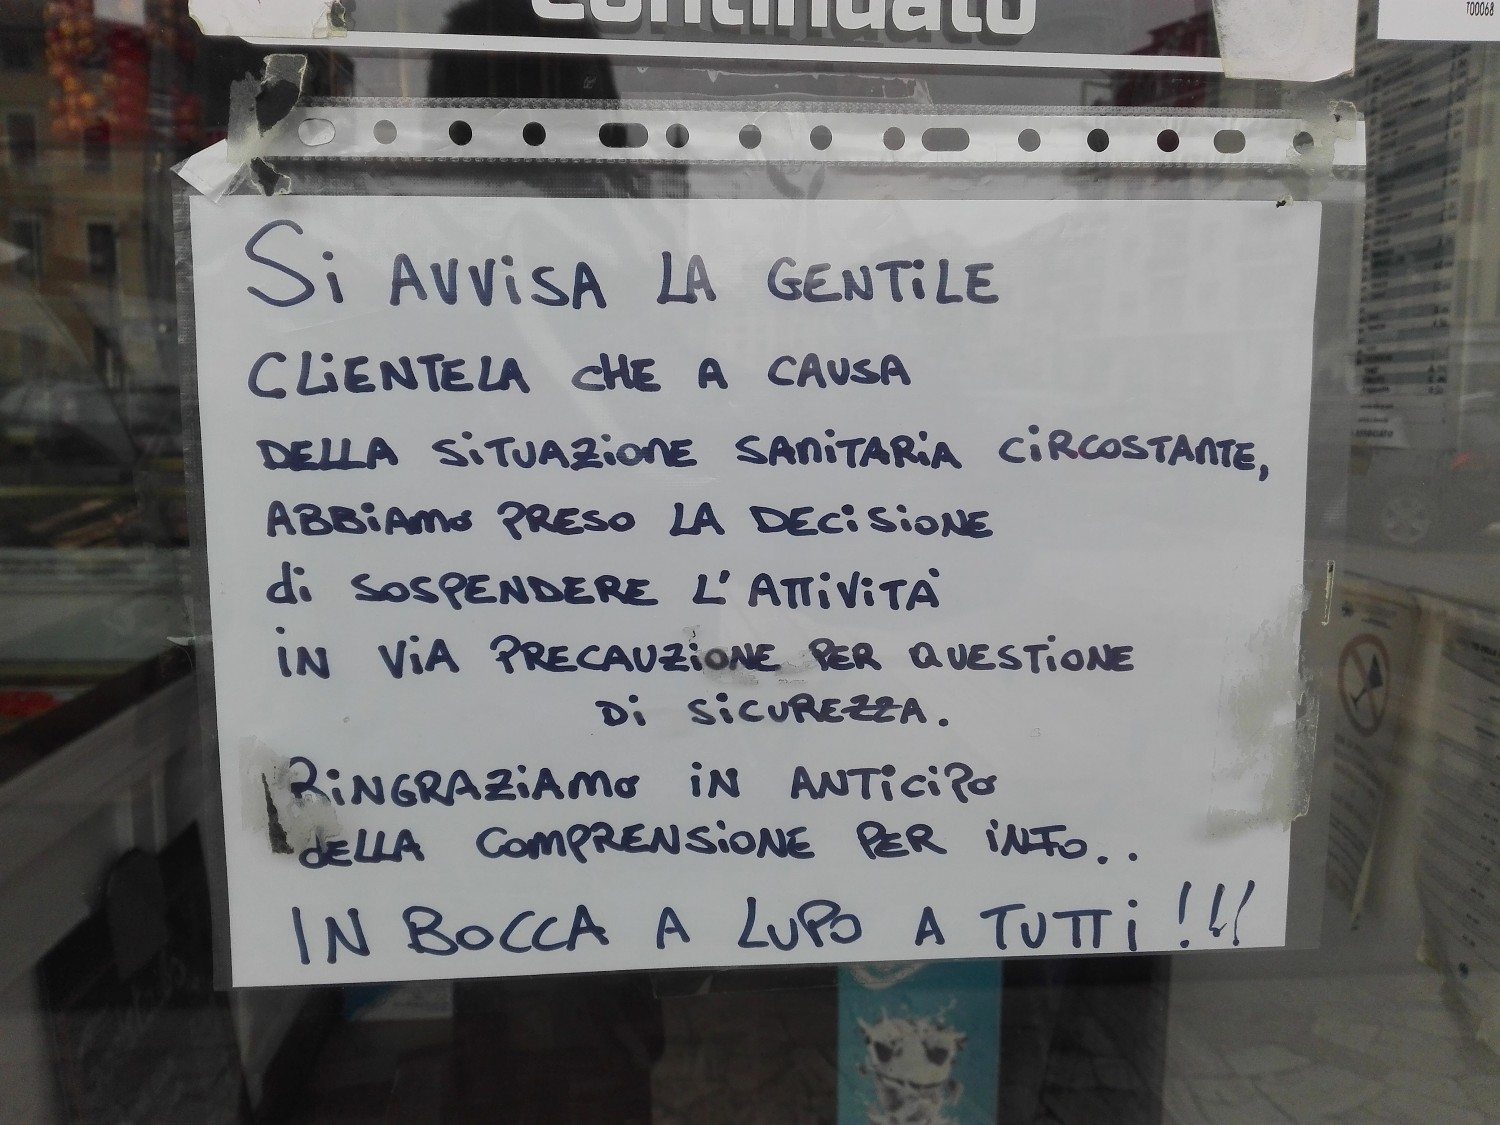 continuato
T00068
Si AVVISA LA GENTILE
CLIENTELA CHE A CAUSA
DELLA SITUAZIONE SANITARIA CIRCOSTANTE,
ABBIAMO PRESO LA DECISIONE
di SOSPENDERE L'ATTIVITÀ
IN VIA PRECAUZIONE PER QUESTIONE
DI SICUREZZA.
RINGRAZIAMO IN ANTICIPO
DELLA COMPRENSIONE PER INFO..
IN BOCCA A LUPO A TUTTI!!!